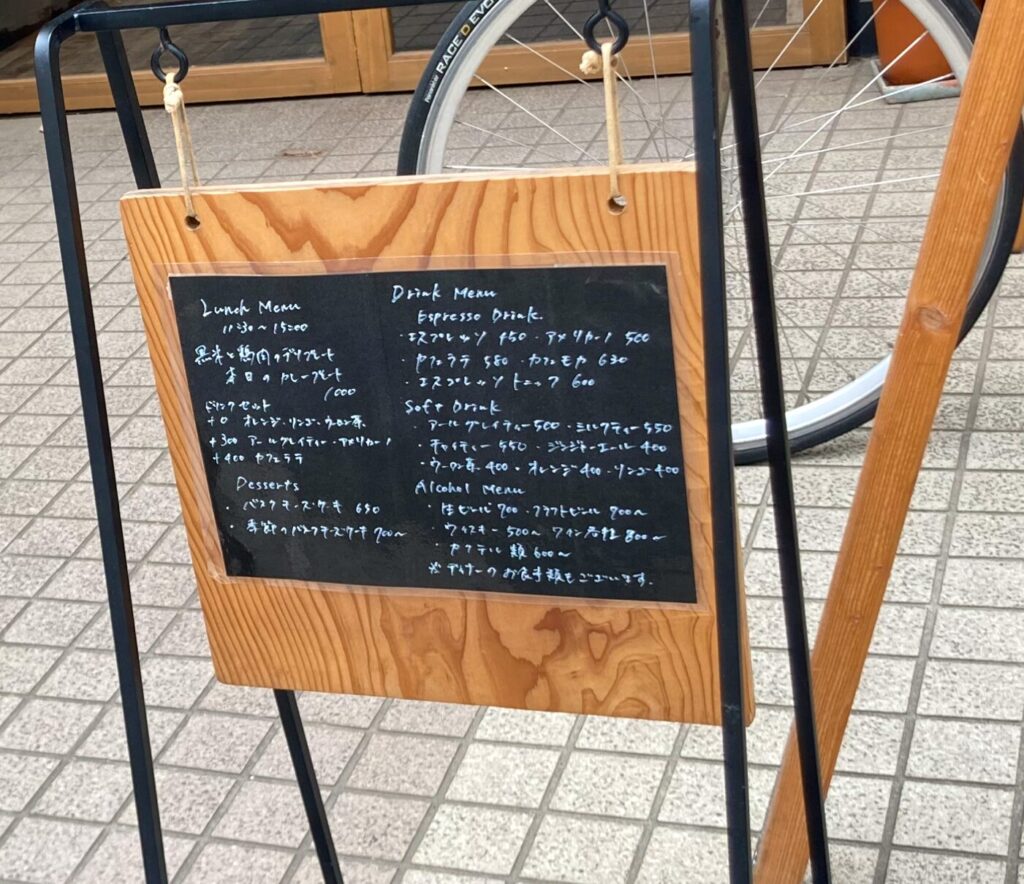 RACE D EVO
Lunch Menu
11:30〜15:00
黒米と鶏肉のデリプレート
本日のカレープレート
1000
ドリンクセット
+0 オレンジ・リンゴ・ウーロン茶
+300 アールグレイティー・アメリカーノ
+400 カフェラテ
Desserts
・バスクチーズケーキ 650
・季節のバスクチーズケーキ 700〜
Drink Menu
Espresso Drink.
・エスプレッソ 450 ・アメリカーノ 500
・カフェラテ 580 ・カフェモカ 630
・エスプレッソトニック 600
Soft Drink
・アールグレイティー 500 ・ミルクティー 550
・チャイティー 550 ・ジンジャーエール 400
・ウーロン茶 400 ・オレンジ 400 ・リンゴ 400
Alcohol Menu
・生ビール 700 ・クラフトビール 900〜
ウィスキー 500〜 ワイン各種 800〜
・カクテル類 600〜
※ディナーのお食事類もございます。